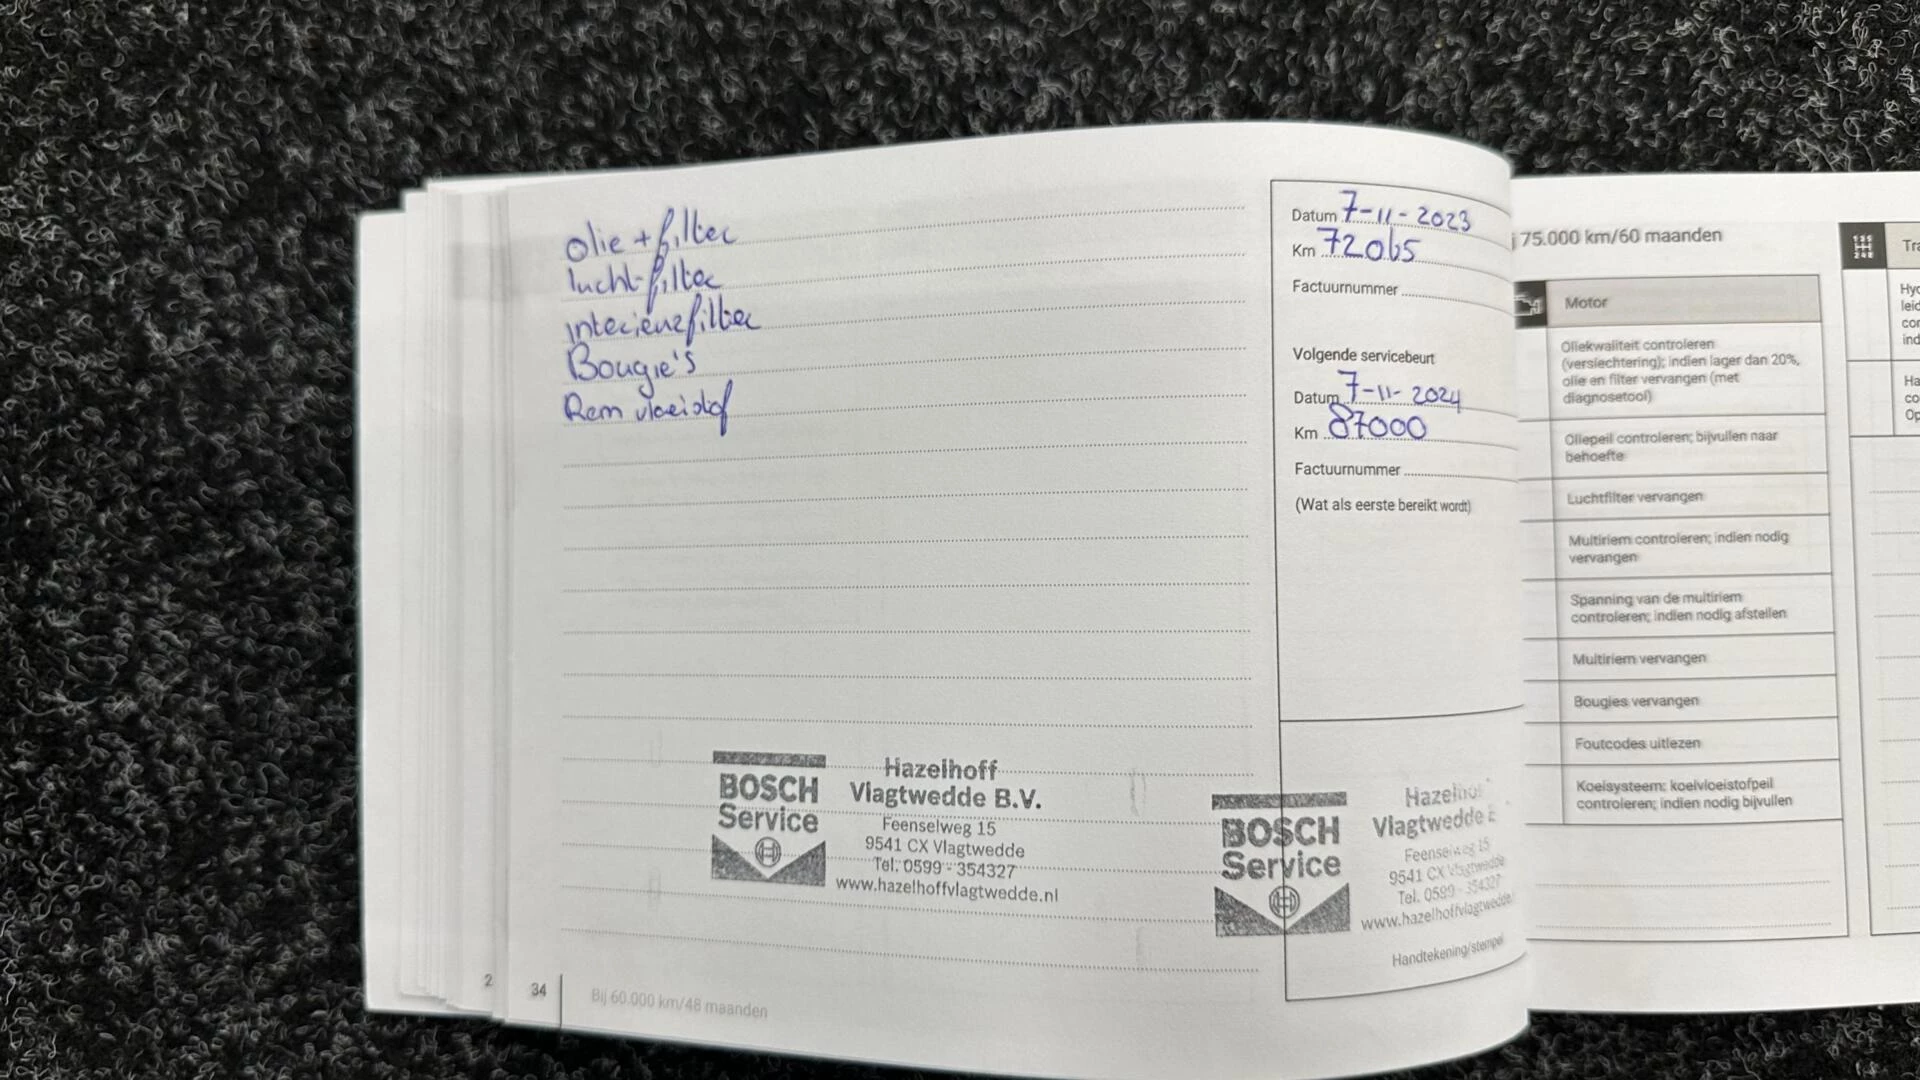 Olie + filter
luchtfilter
interieurfilter
Bougie's
Rem vloeistof
BOSCH
Service
Hazelhoff
Vlagtwedde B.V.
Feenselweg 15
9541 CX Vlagtwedde
Tel. 0599 - 354327
www.hazelhoffvlagtwedde.nl
2
34
Bij 60.000 km/48 maanden
Datum 7-11-2023
Km 72065
Factuurnummer
Volgende servicebeurt
Datum 7-11-2024
Km 87000
Factuurnummer
(Wat als eerste bereikt wordt)
BOSCH
Service
Vlagtwedde
Feenselweg 15
9541 CX Vlagtwedde
Tel. 0599 - 354327
www.hazelhoffvlagtwedde
Handtekening/stempel
75.000 km/60 maanden
Motor
Oliekwaliteit controleren
(verslechtering); indien lager dan 20%,
olie en filter vervangen (met
diagnosetool)
Oliepeil controleren; bijvullen naar
behoefte
Luchtfilter vervangen
Multiriem controleren; indien nodig
vervangen
Spanning van de multiriem
controleren; indien nodig afstellen
Multiriem vervangen
Bougies vervangen
Foutcodes uitlezen
Koelsysteem: koelvloeistofpeil
controleren; indien nodig bijvullen
Tra
Hyd
leid
con
ind
Ha
co
Op